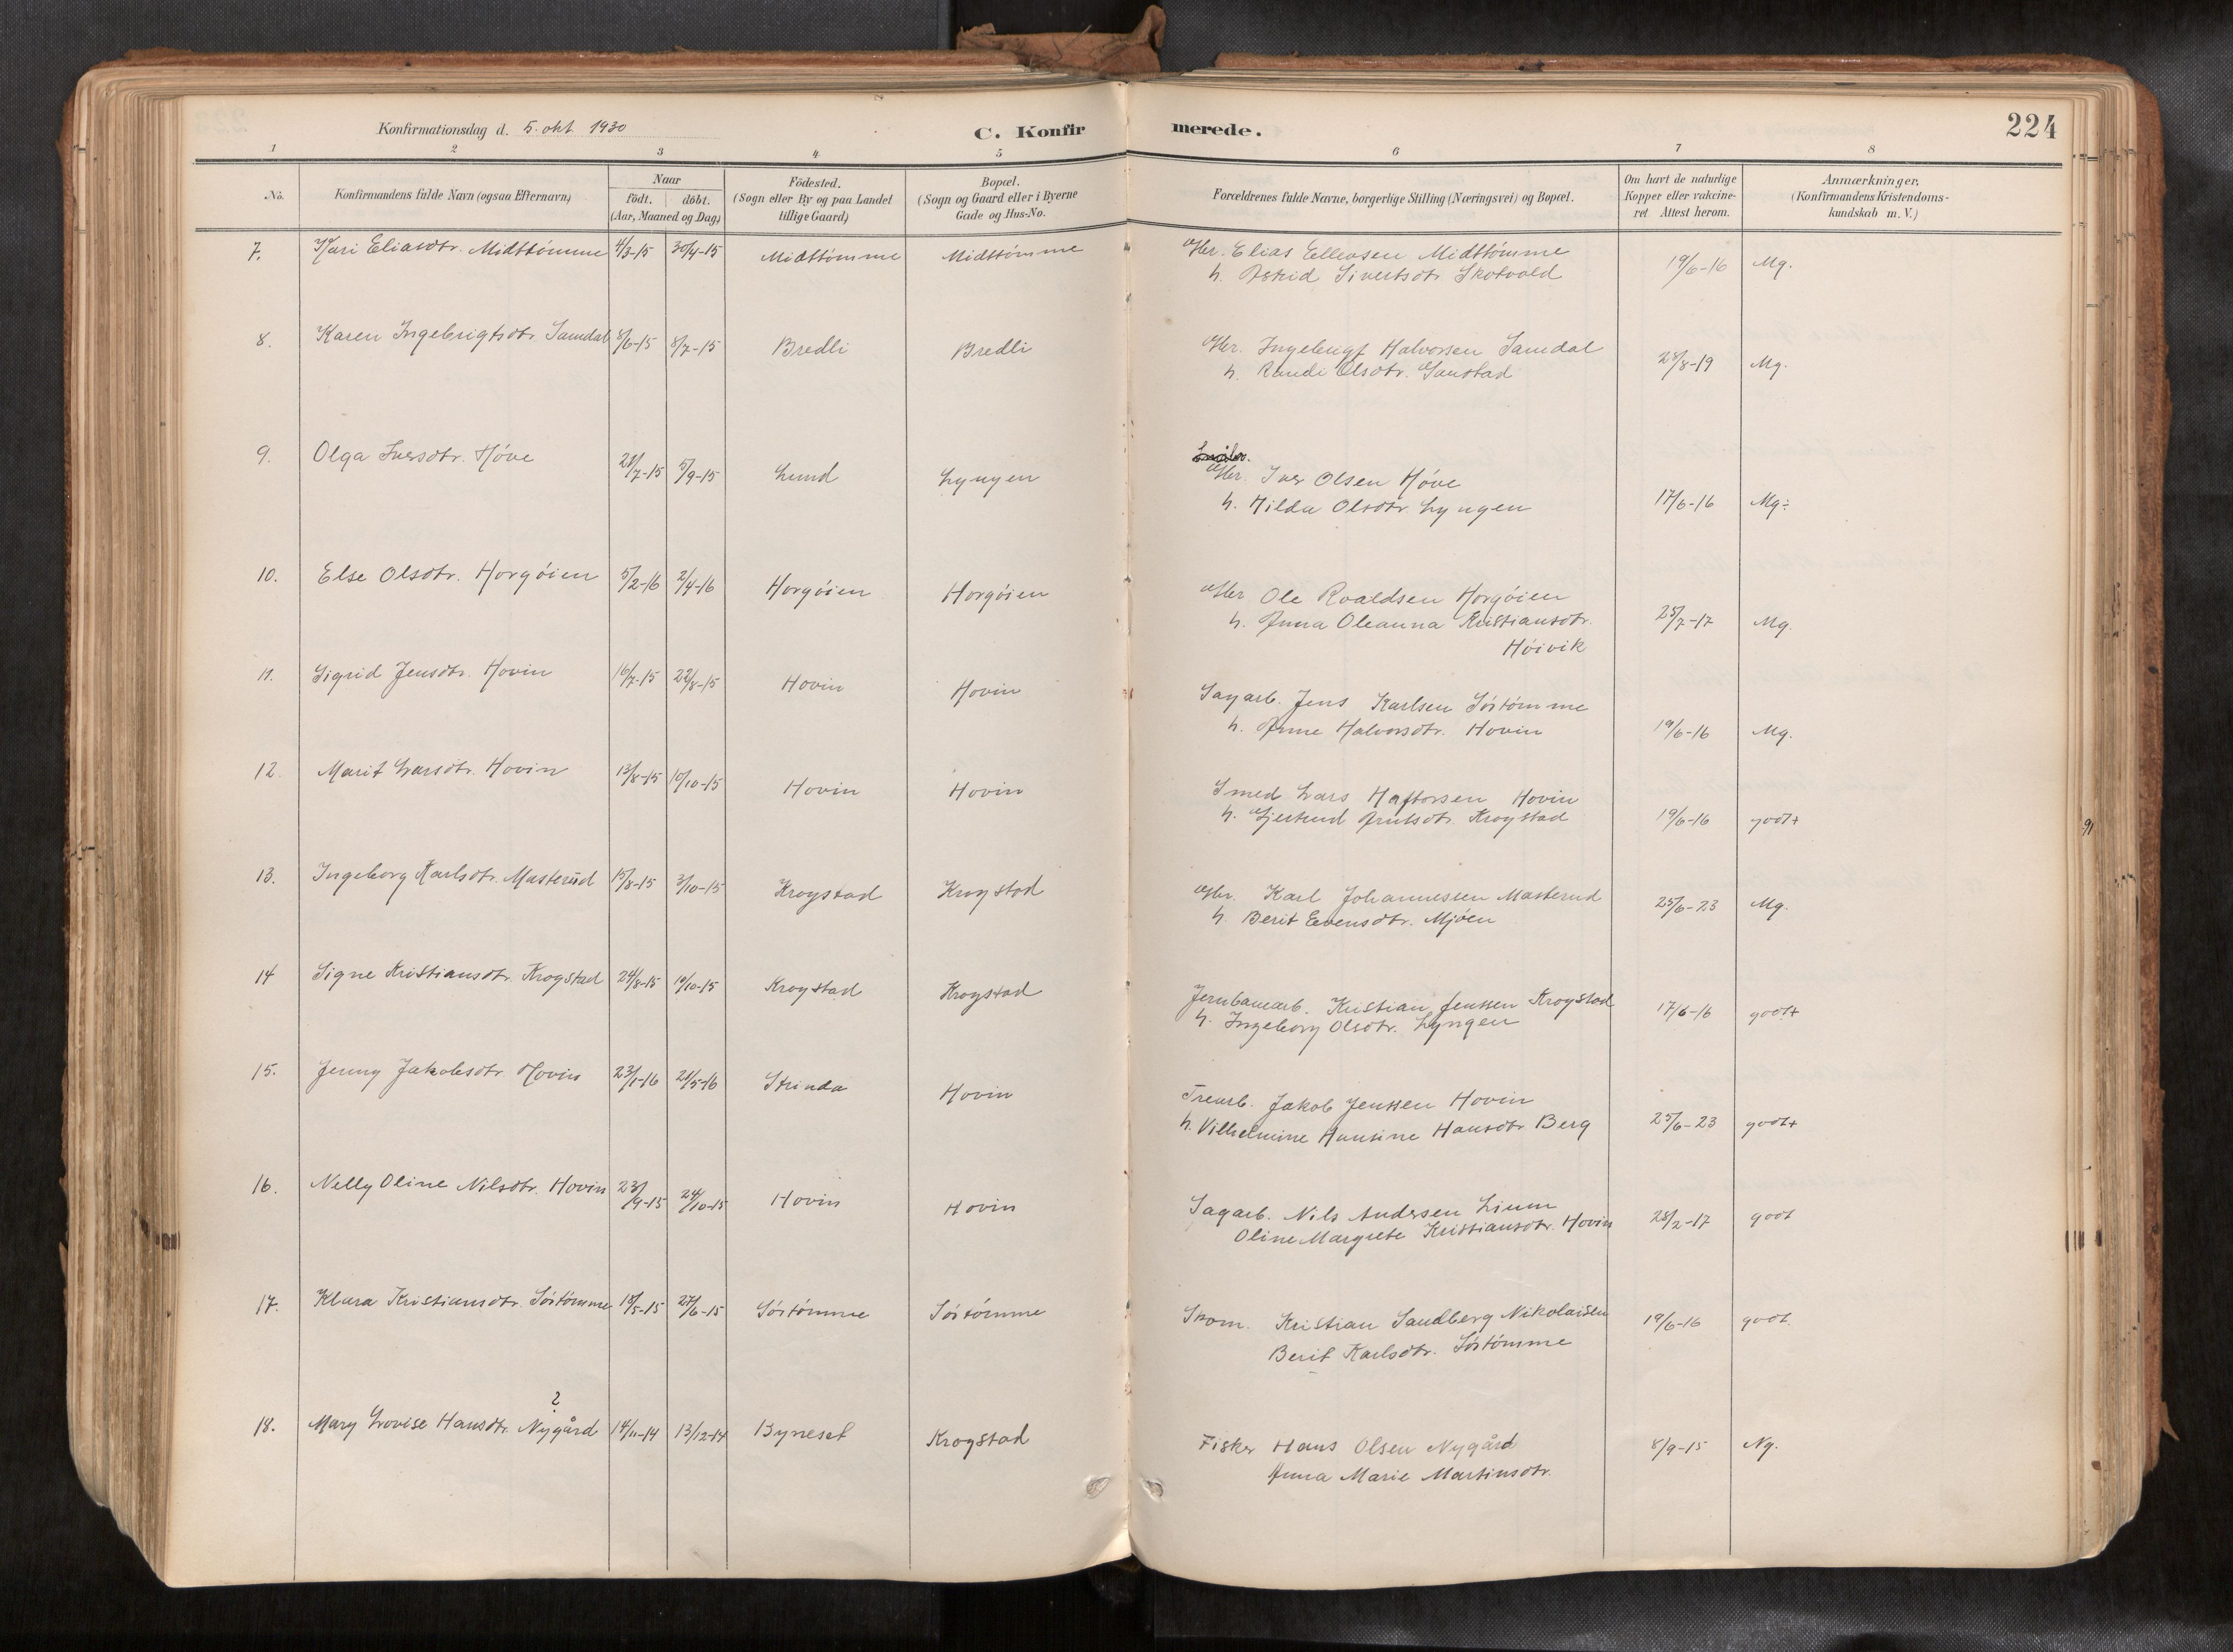 Konfirmationsdag d. 5. okt 1930
C. Konfirmerede.
224
1 2 3 4 5 6 7 8
No. Konfirmandens fulde Navn (ogsaa Efternavn) Naar födt. döbt. (Aar, Maaned og Dag) Födested. (Sogn eller By og paa Landet tillige Gaard) Bopæl. (Sogn og Gaard eller i Byerne Gade og Hus-No. Forældrenes fulde Navne, borgerlige Stilling (Næringsvei) og Bopæl. Om havt de naturlige Kopper eller vakcineret. Attest herom. Anmærkninger. (Konfirmandens Kristendomskundskab m. V.)
7. Kari Eliasdtr. Midttømme 4/3-15 30/4-15 Midttømme Midttømme Gbr. Elias Ellevsen Midttømme 19/6-16 Mg.
h. Astrid Sivertsdtr Skotvold
8. Karen Ingebrigtsdtr. Samdal 8/6-15 8/7-15 Bredli Bredli Gbr. Ingebrigt Halvorsen Samdal 28/8-19 Mg.
h. Randi Olsdtr. Gaustad
9. Olga Iversdtr. Høve 21/7-15 5/9-15 Lund Lyngen
Gbr. Iver Olsen Høve
h. Hilda Olsdtr. Lyngen 17/6-16 Mg÷
10. Else Olsdtr. Horgøien 5/2-16 2/4-16 Horgøien Horgøien Gbr Ole Roaldsen Horgøien 25/7-17 Mg.
h. Anna Oleanna Kristiansdtr.
Høivik
11. Sigrid Jensdtr. Hovin 16/7-15 22/8-15 Hovin Hovin Sagarb. Jens Karlsen Søstømme
h. Anne Halvorsdtr. Hovin 19/6-16 Mg.
12. Marit Larsdtr. Hovin 13/8-15 10/10-15 Hovin Hovin Smed Lars Haftorsen Hovin
h. Gjertrud Arntsdtr. Krogstad 19/6-16 godt+
13. Ingeborg Karlsdtr. Masterud 15/8-15 3/10-15 Krogstad Krogstad Gbr. Karl Johannessen Masterud 25/6-23 Mg.
h. Berit Evensdtr. Mjøen
14 Signe Kristiansdtr. Krogstad 24/8-15 10/10-15 Krogstad Krogstad Jernbanearb. Kristian Jenssen Krogstad 17/6-16 godt+
h. Ingeborg Olsdtr. Lyngen
15. Jenny Jakobsdtr. Hovin 23/1-16 21/5-16 Strinda Hovin Trearb. Jakob Jenssen Hovin
h. Vilhelmine Hansine Hansdtr Berg 25/6-23 godt+
16. Nelly Oline Nilsdtr. Hovin 23/9-15 24/10-15 Hovin Hovin Sagarb. Nils Andersen Lium 28/2-17 godt
Oline Margrete Kristiansdtr. Hovin
17. Klara Kristiansdtr. Søstømme 18/5-15 27/6-15 Søstømme Søstømme Skom. Kristian Sandberg Nikolaisen 19/6-16 godt.
Berit Karlsdtr. Søstømme
?
18. Mary Lovise Hansdtr. Nygård 14/11-14 13/12-14 Byneset Krogstad Fisker Hans Olsen Nygård 8/9-15 Ng.
Anna Marie Martinsdtr.